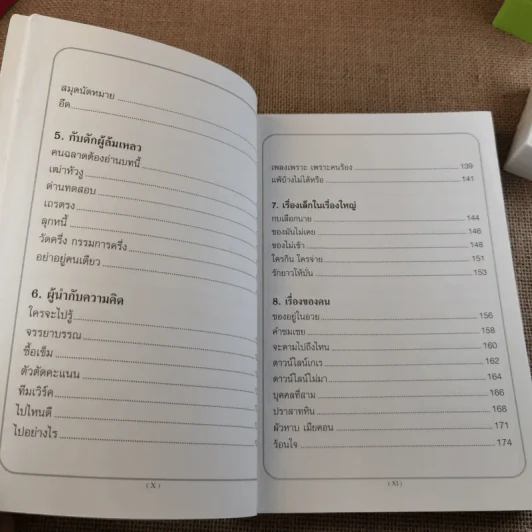 สมุดนัดหมาย
อึด
5. กับดักผู้ล้มเหลว
คนฉลาดต้องอ่านบทนี้
เฒ่าหัวงู
ด่านทดสอบ
เถรตรง
ลูกหนี้
วัดครึ่ง กรรมการครึ่ง
อย่าอยู่คนเดียว
6. ผู้นำกับความคิด
ใครจะไปรู้
จรรยาบรรณ
ซื้อเข็ม
ตัวตัดคะแนน
ทีมเวิร์ค
ไปไหนดี
ไปอย่างไร
( X )
เพลงเพราะ เพราะคนร้อง 139
แพ้บ้างไม่ได้หรือ 141
7. เรื่องเล็กในเรื่องใหญ่
กบเลือกนาย 144
ของมันไม่เคย 146
ของไม่เข้า 148
ใครกิน ใครจ่าย 151
รักยาวให้บั่น 153
8. เรื่องของคน
ของอยู่ในอวย 156
คำชมเชย 158
จะตามไปถึงไหน 160
ดาวน์ไลน์เกเร 162
ดาวน์ไลน์ไม่มา 164
บุคคลที่สาม 166
ปราสาททิน 168
ผัวหาบ เมียคอน 171
ร้อนใจ 174
( XI )